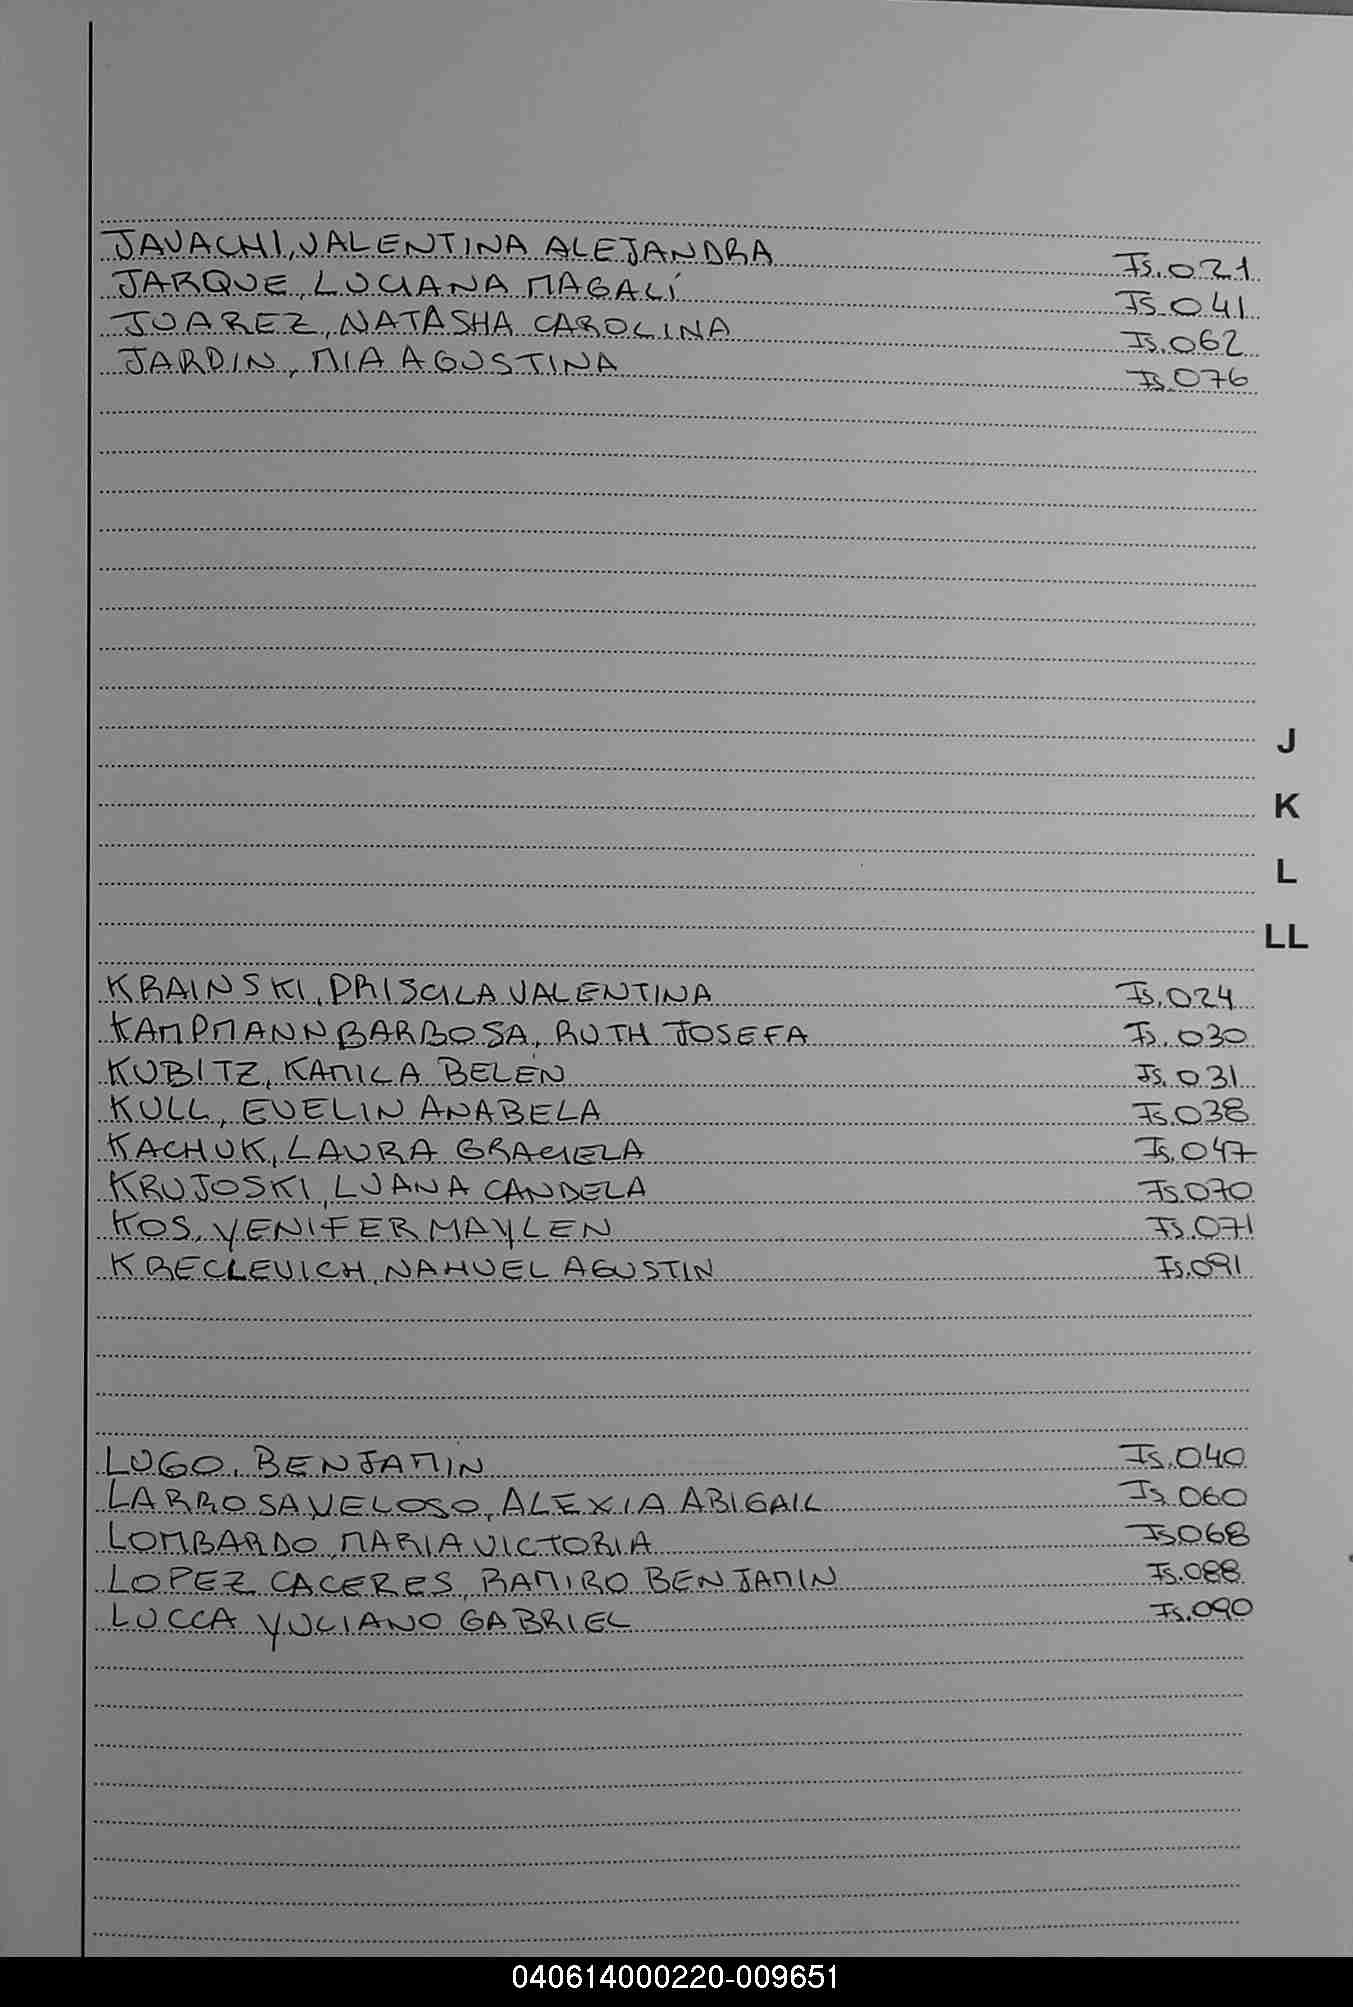 JAVACHI, VALENTINA ALEJANDRA Fs.021
JARQUE, LUCIANA MAGALÍ Fs.041
JUAREZ, NATASHA CAROLINA Fs.062
JARDIN, MIA AGUSTINA Fs.076
J
K
L
LL
KRAINSKI, PRISCILA VALENTINA Fs.024
KAMPMANN BARBOSA, RUTH JOSEFA Fs.030
KUBITZ, KAMILA BELÉN Fs.031
KULL, EVELIN ANABELA Fs.038
KACHUK, LAURA GRACIELA Fs.047
KRUJOSKI, LUANA CANDELA Fs.070
KOS, YENIFER MAYLEN Fs.071
KRECLEVICH, NAHUEL AGUSTIN Fs.091
LUGO, BENJAMÍN Fs.040
LARROSA VELOSO, ALEXIA ABIGAIL Fs.060
LOMBARDO, MARIA VICTORIA Fs.068
LOPEZ CACERES, RAMIRO BENJAMIN Fs.088
LUCCA YULIANO GABRIEL Fs.090
040614000220-009651